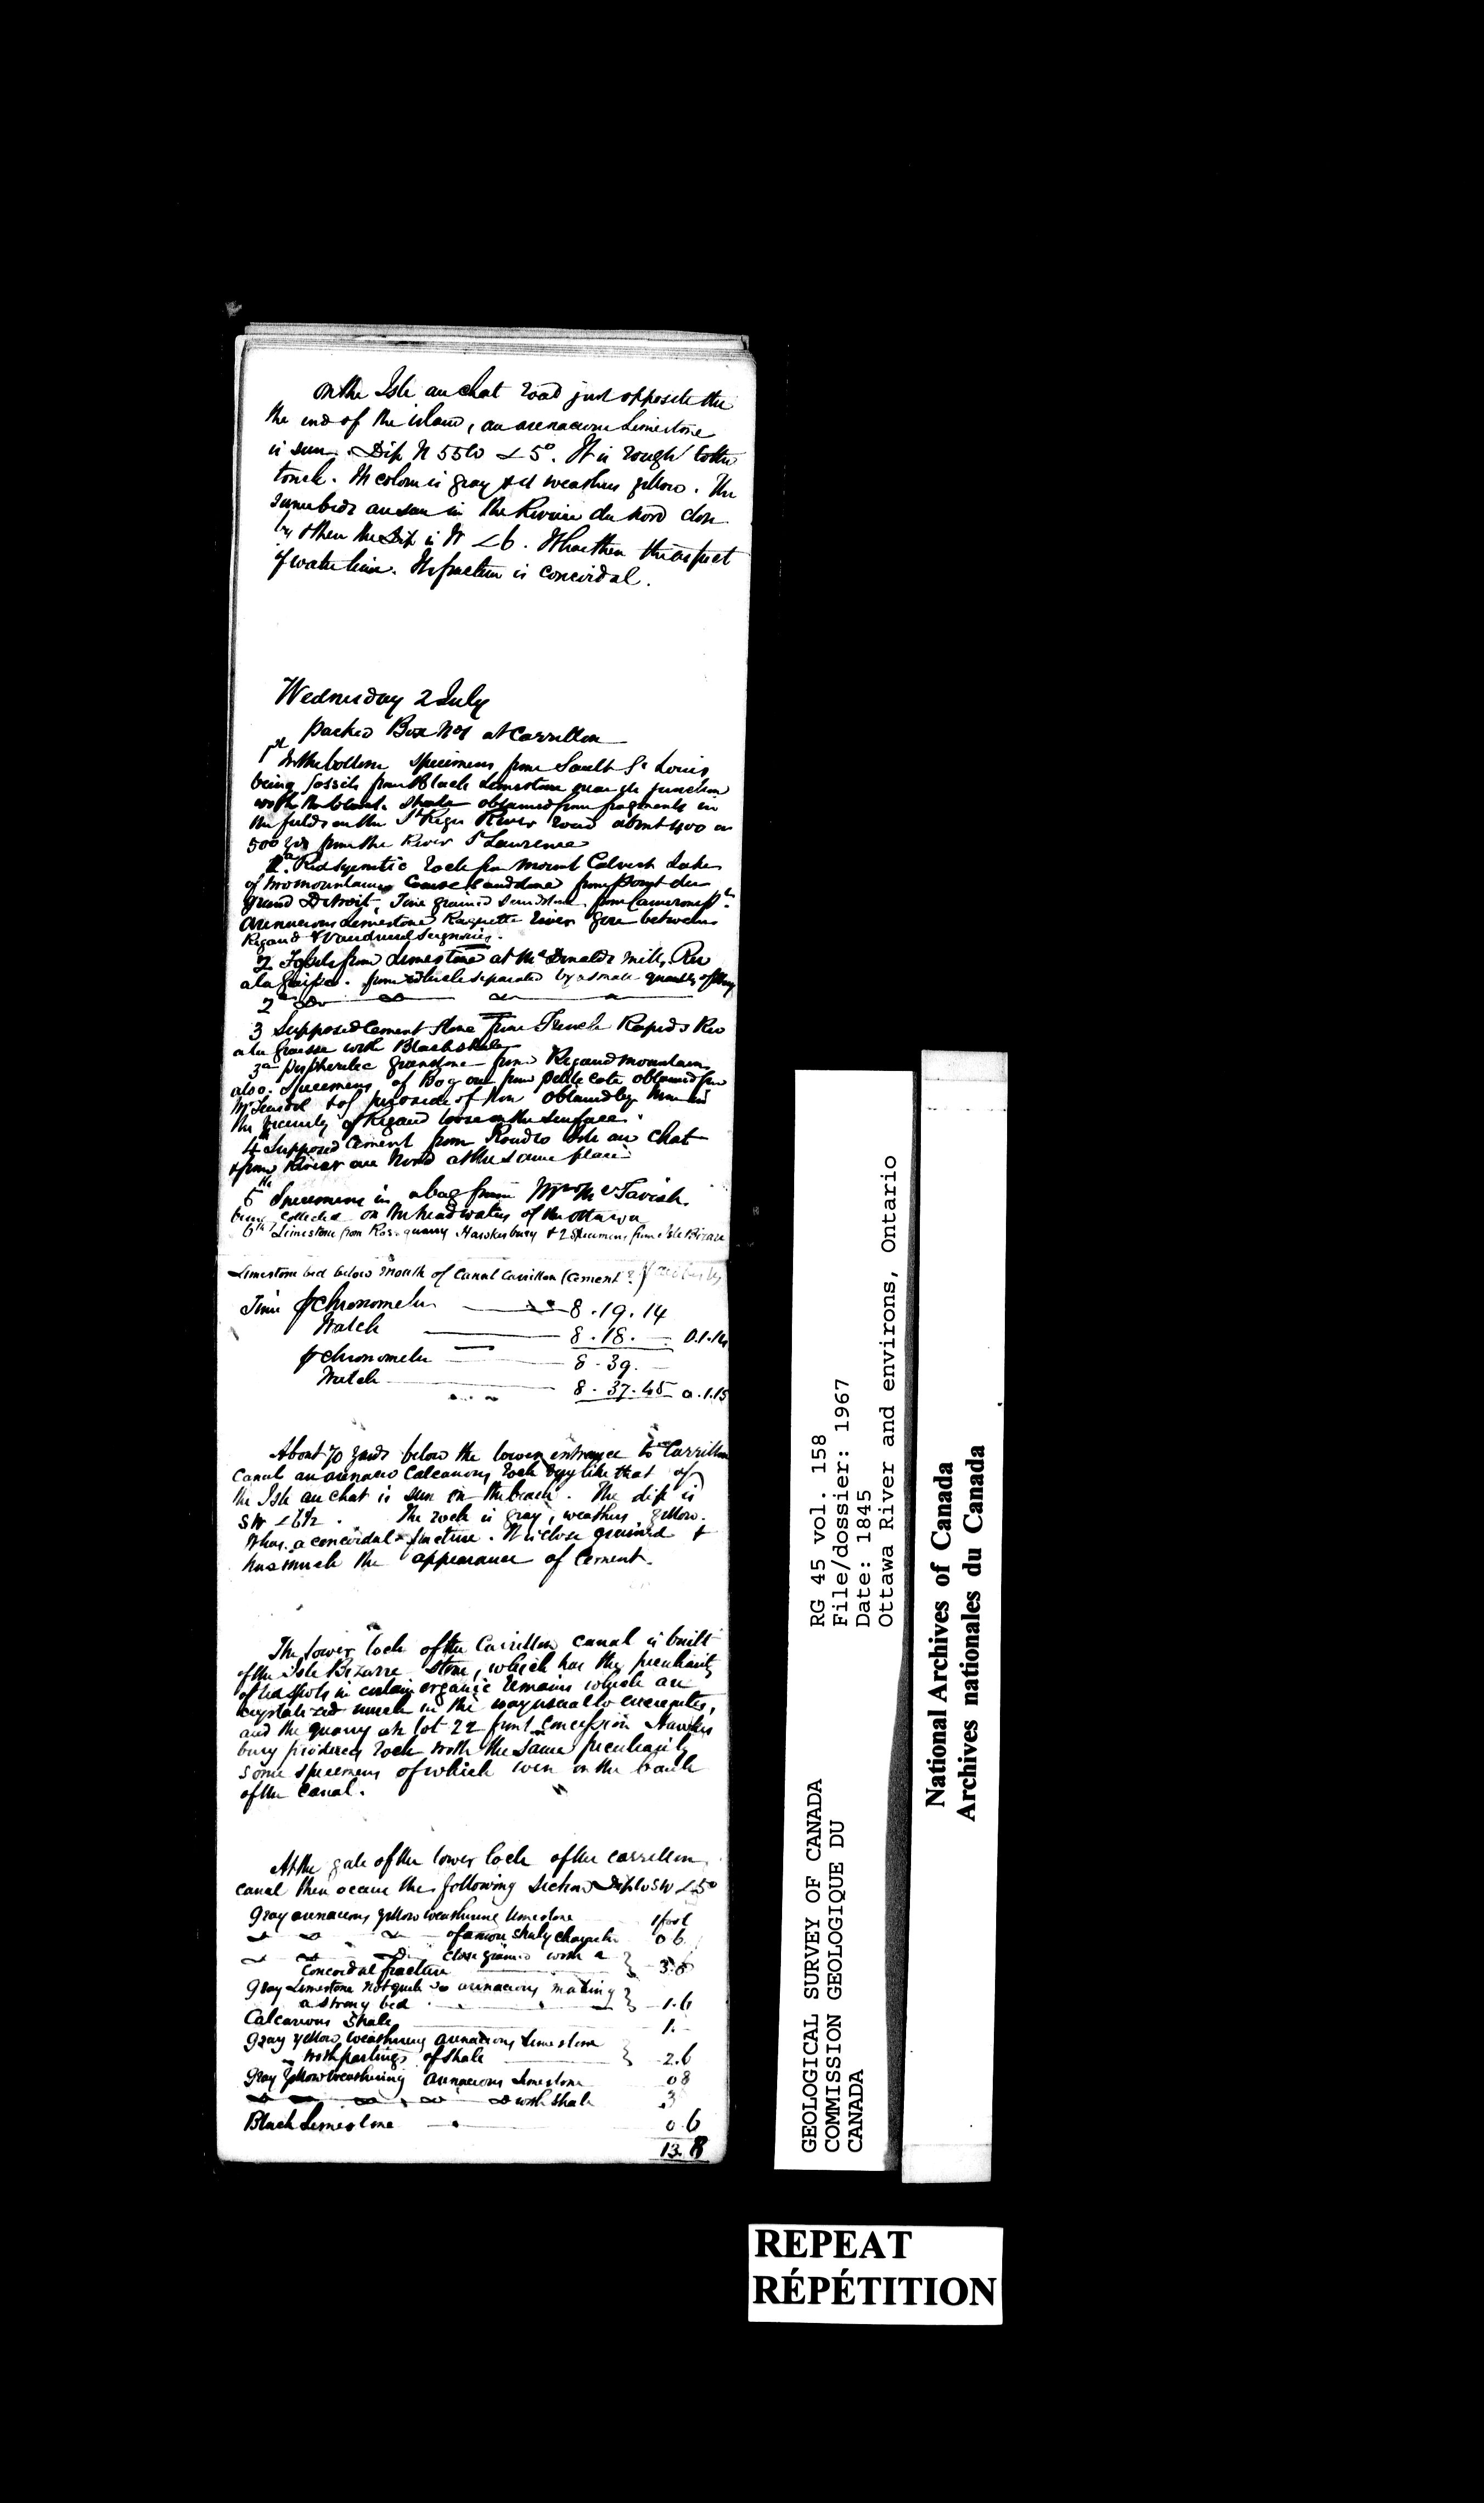 On the Isle au chat road just opposite the
the end of the island, an arenaceous limestone
is seen. Dip N 55 W ∠ 5°. It is rough to the
touch. Its colour is gray & it weathers yellow. The
same beds are seen in the Riviere du Nord close
by & then the Dip is W ∠ 6. It has then the aspect
of water lime. Its fracture is concoidal.
Wednesday 2 July
Packed Box No 1 at Carrillon
1st In the bottom specimens from Sault St Louis
being fossils from Black limestone near its junction
with the black shale obtained from fragments in
the fields on the St Regis River road about 400 or
500 yds from the River St Lawrence
Red syenitic rock from Mount Calvert Lake
of two mountains Coarse Sandstone from Point du
Grand Detroit, Fine grained sandstone from Camerons Pt.
Arenaceous limestone Raquette River fire between
Rigaud & Vaudreuil Seignories.
2 Fossils from limestone at McDonalds mills, Riv
a la Graisse. from separated by a small quantity of
2a Do Do Do
3 Supposed Cement Stone from French Rapids Riv
a la Graisse with Black shale
3a Porpheritic greenstone from Rigaud mountain
also specimens of Bog ore from Petite Cote obtained from
Mr & of peroxide of Iron obtained by him in
the vicinity of Rigaud loose on the surface.
4th Supposed Cement from Road to Isle au Chat
& from River au Nord at the same place
5th Specimens in a bag from Mr McTavish.
being collected on the head waters of the Ottawa
6th Limestone from Ross quarry Hawkesbury & 2 Specimens from Isle Bizare
Limestone bed below mouth of Canal Carrillon (Cement?)
Time p chronometer 8.19.14
Watch 8.18. — 0.1.14
p chronometer 8.39. —
Watch 8.37.45 0.1.15
About 70 yards below the lower entrance to Carrillon
Canal an arenaceo Calcareous rock very like that of
the Isle au chat is seen on the beach. The dip is
SW ∠ 6½. The rock is gray, weathers yellow.
It has a concoidal fracture. It is close grained &
has much the appearance of Cement.
The lower lock of the Carrillon canal is built
of the Isle Bizarre stone, which has the peculiarity
of red spots in certain organic remains which are
crystalized much in the way usual to encrenites,
and the quarry on lot 22 front Concession Hawkes
bury produces rock with the same peculiarity
some specimens of which were on the bank
of the Canal.
At the gate of the lower lock of the carrillon
canal then occurs the following section Dip W SW ∠ 5°
Gray arenaceous yellow weathering limestone 1 foot
Do Do Do of a more shaly character 0 6
Do Do Do close grained with a
Concoidal fracture 3.6
Gray limestone not quite so arenaceous making
a strong bed 1.6
Calcareous Shale 1. —
Gray yellow weathering arenaceous limestone
with partings of shale 2.6
Gray yellow weathering arenaceous limestone 0 8
Do Do Do Do with shale 3
Black limestone 0.6
13.8
RG 45 vol. 158
File/dossier: 1967
Date: 1845
Ottawa River and environs, Ontario
GEOLOGICAL SURVEY OF CANADA
COMMISSION GEOLOGIQUE DU
CANADA
National Archives of Canada
Archives nationales du Canada
REPEAT
RÉPÉTITION